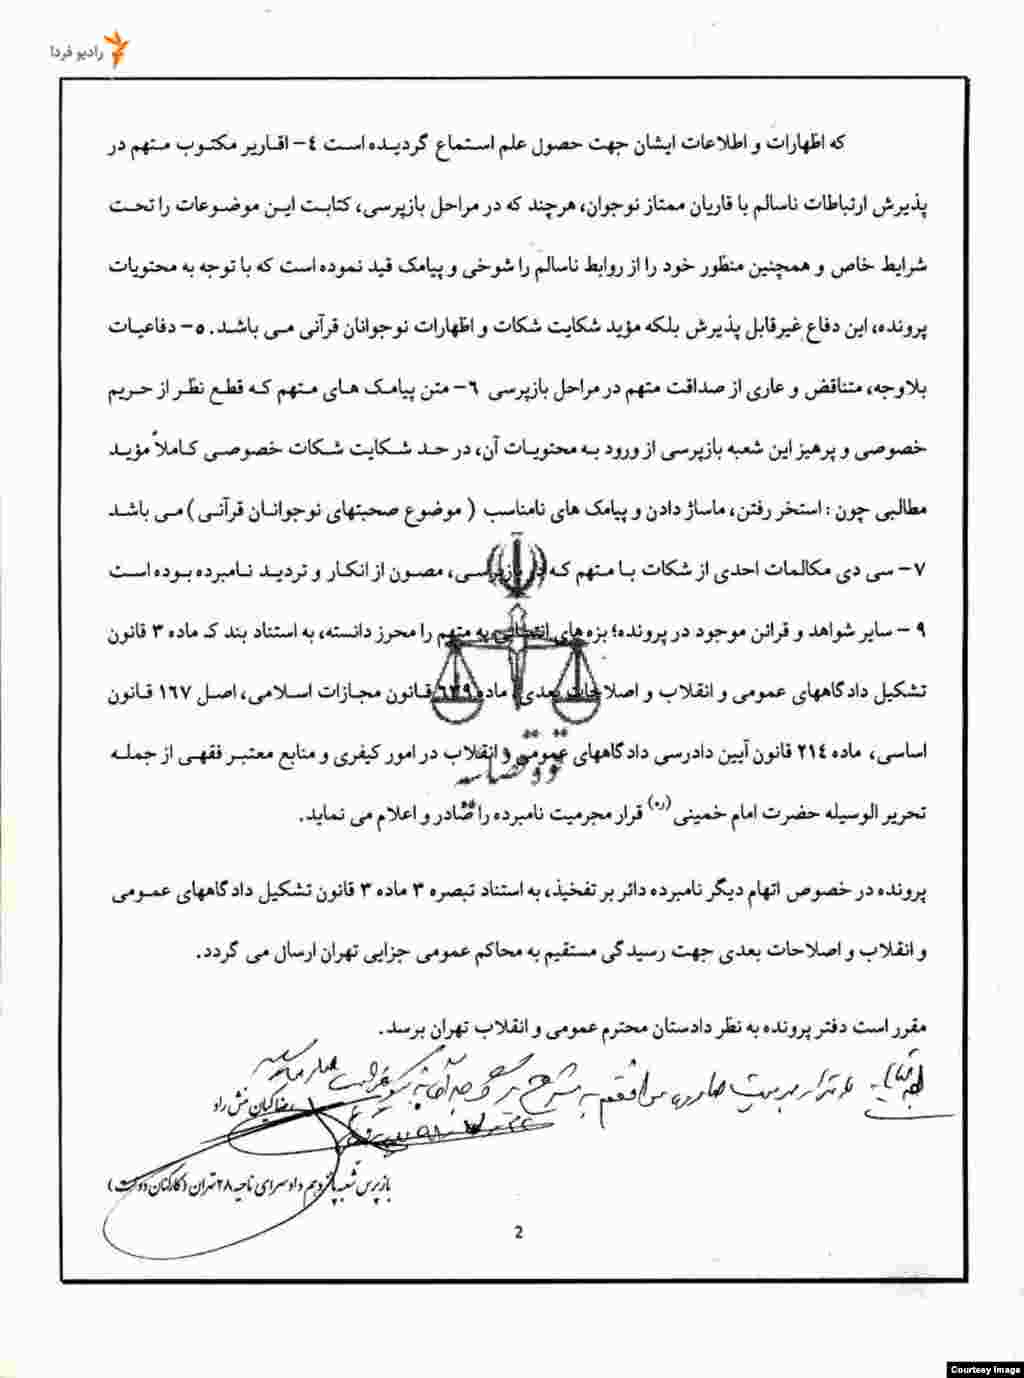 رادیو فردا
که اظهارات و اطلاعات ایشان جهت حصول علم استماع گردیده است ٤- اقاریر مکتوب متهم در
پذیرش ارتباطات ناسالم با قاریان ممتاز نوجوان، هرچند که در مراحل بازپرسی، کتابت این موضوعات را تحت
شرایط خاص و همچنین منظور خود را از روابط ناسالم را شوخی و پیامک قید نموده است که با توجه به محتویات
پرونده، این دفاع غیرقابل پذیرش بلکه مؤید شکایت شکات و اظهارات نوجوانان قرآنی می باشد. ۵- دفاعیات
بلاوجه، متناقض و عاری از صداقت متهم در مراحل بازپرسی ٦- متن پیامک های متهم که قطع نظر از حریم
خصوصی و پرهیز این شعبه بازپرسی از ورود به محتویات آن، در حد شکایت شکات خصوصی کاملاً مؤید
مطالبی چون : استخر رفتن، ماساژ دادن و پیامک های نامناسب ( موضوع صحبتهای نوجوانان قرآنی) می باشد
۷- سی دی مکالمات احدی از شکات با متهم که در بازپرسی، مصون از انکار و تردید نامبرده بوده است
۹ - سایر شواهد و قرائن موجود در پرونده؛ بزه های انتسابی به متهم را محرز دانسته، به استناد بند ک ماده ۳ قانون
تشکیل دادگاههای عمومی و انقلاب و اصلاحات بعدی، ماده ٦۳۹ قانون مجازات اسلامی، اصل ١٦٧ قانون
اساسی، ماده ٢١٤ قانون آیین دادرسی دادگاههای عمومی و انقلاب در امور کیفری و منابع معتبر فقهی از جمله
تحریر الوسیله حضرت امام خمینی (ره) قرار مجرمیت نامبرده را صادر و اعلام می نماید.
قوه قضائیه
پرونده در خصوص اتهام دیگر نامبرده دائر بر تفخیذ، به استناد تبصره ۳ ماده ۳ قانون تشکیل دادگاههای عمومی
و انقلاب و اصلاحات بعدی جهت رسیدگی مستقیم به محاکم عمومی جزایی تهران ارسال می گردد.
مقرر است دفتر پرونده به نظر دادستان محترم عمومی و انقلاب تهران برسد.
با قرار مجرمیت صادره موافقم به شرح
بازپرس شعبه پانزدهم دادسرای ناحیه ۲۸ تهران (کارکنان دولت)
2
Courtesy Image